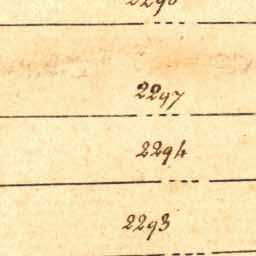 2297
2294
2293